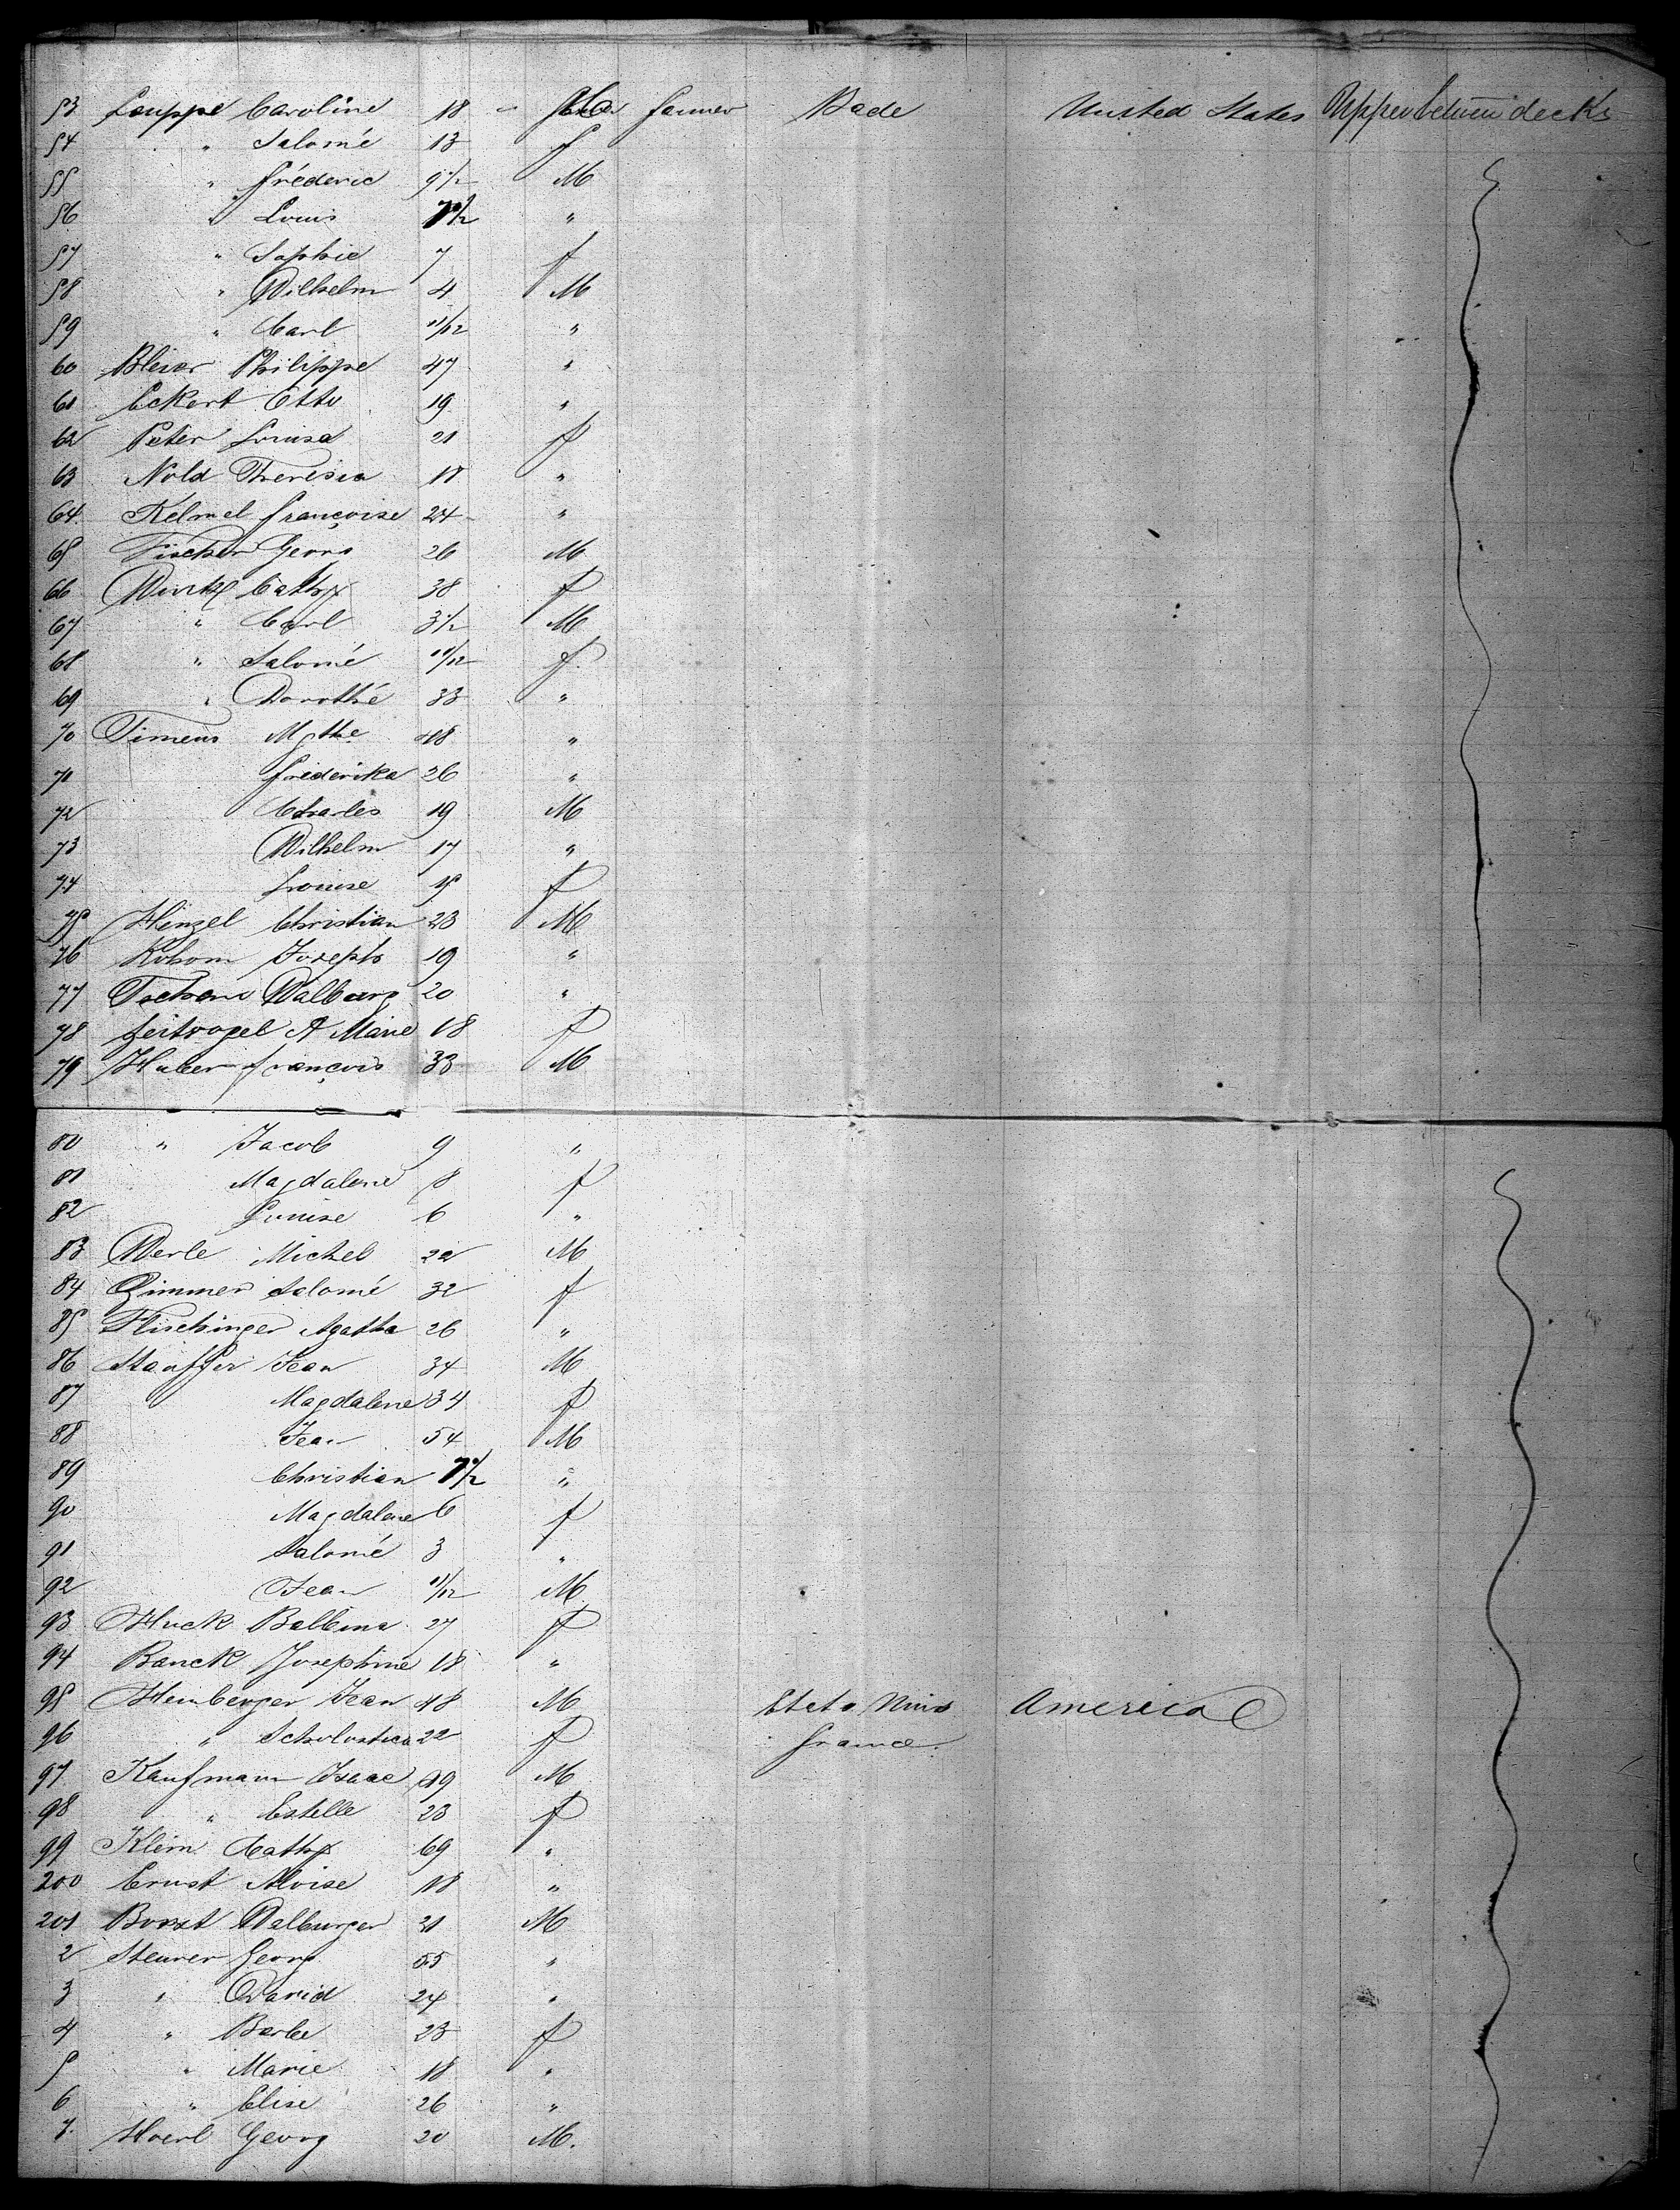 53 Louppe Caroline 18 " farmer Bade United States Upper between decks
54 " Salomé 13 f
55 " Fréderic 9 1/2 M
56 " Louis 7 1/2 "
57 " Sophie 7 f
58 " Wilhelm 4 M
59 " Carl 11/12 "
60 Bleier Philippe 47 "
61 Eckert Otto 19 "
62 Peter Louise 21 f
63 Nold Theresia 18 "
64 Kelmel Françoise 24 "
65 Fischer Georg 26 M
66 Winkel Cath 38 f
67 " Carl 3 1/2 M
68 " Salomé 10/12 f
69 " Dorothé 33 "
70 Timeus Mgthe 48 "
71 Frederika 26 "
72 Charles 19 M
73 Wilhelm 17 "
74 Louise 15 f
75 Hinzel Christian 23 M
76 Kohom Joseph 19 "
77 Walburg 20 "
78 Zeitvogel A Marie 18 f
79 Huber François 33 M
80 " Jacob 9 "
81 Magdalene 8 f
82 Louise 6 "
83 Werle Michel 22 M
84 Zimmer Salomé 32 f
85 Flischinger Agatha 26 "
86 Stauffer Jean 34 M
87 Magdalene 34 f
88 Jean 54 M
89 Christian 7 1/2 "
90 Magdalene 6 f
91 Salomé 3 "
92 Jean 11/12 M
93 Huck Balbina 27 f
94 Banck Josephine 18 "
95 Heinberger Jean 48 M Etats Unis America
96 " Scholastica 22 f France
97 Kaufmann Isaac 49 M
98 " Estelle 23 f
99 Klein Cath 69 "
200 Ernst Aloise 18 "
201 Borst Walburger 21 M
2 Steurer Georg 55 "
3 " David 24 "
4 " Barbe 23 f
5 " Marie 18 "
6 " Elise 26 "
7. Hoerl Georg 20 M.